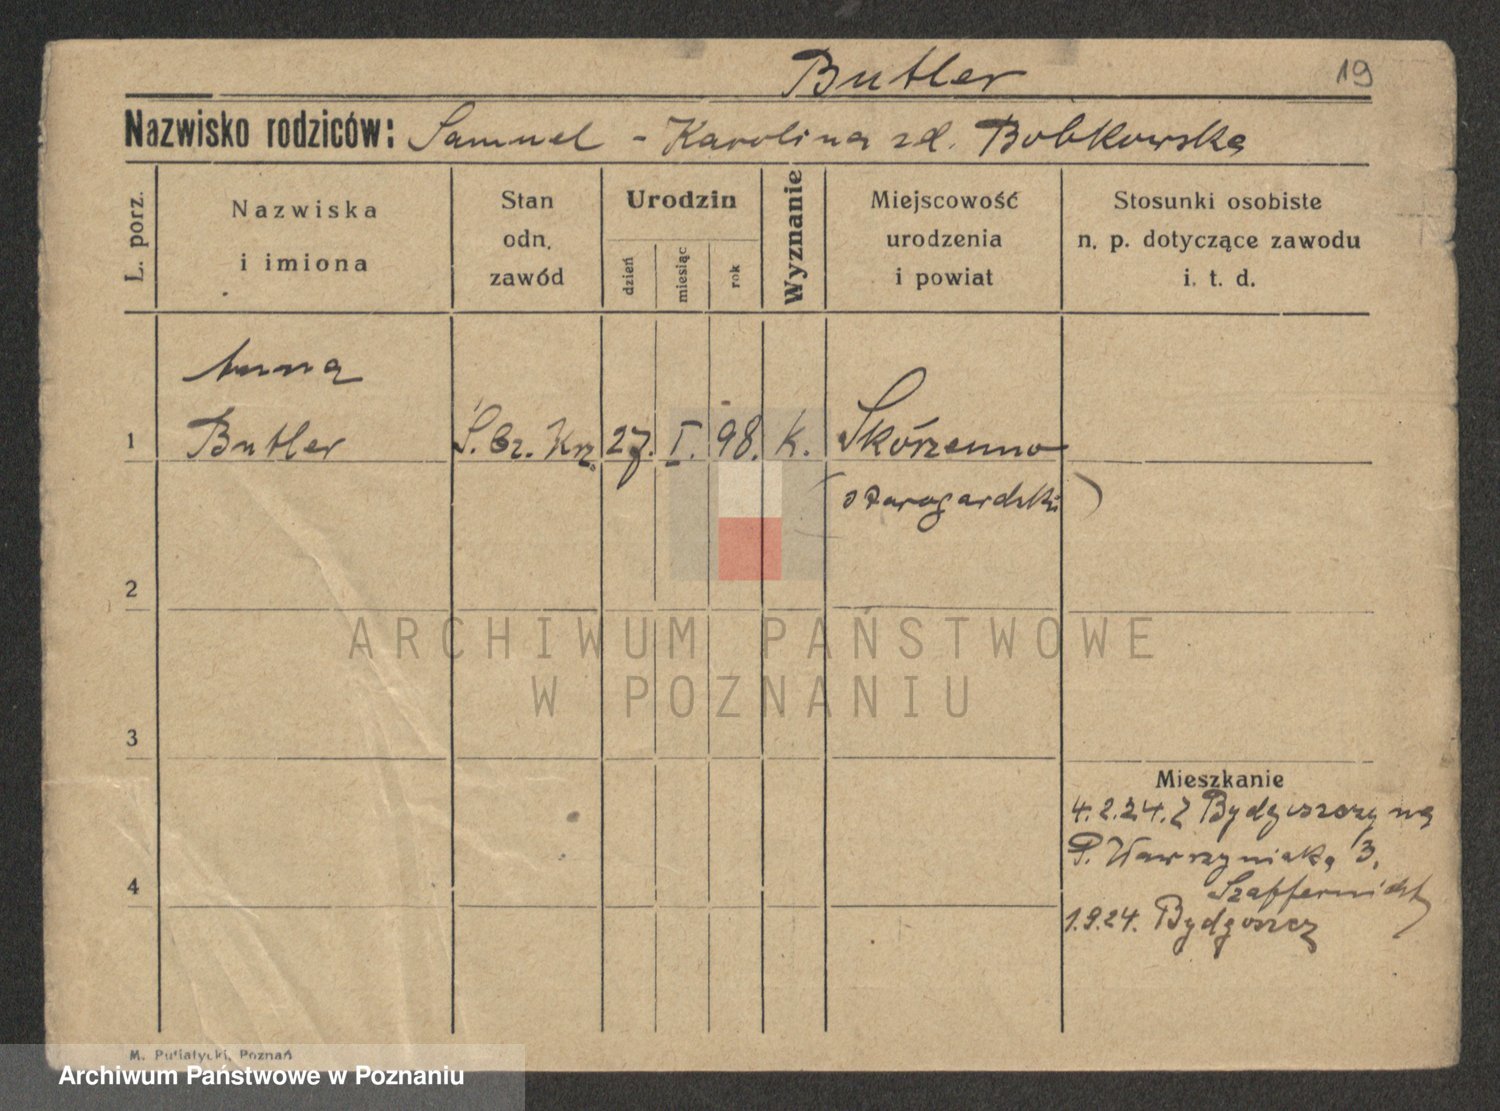 Butler
19
Nazwisko rodziców: Samuel - Karolina zd. Bobkowska
L. porz.
Nazwiska
i imiona
Stan
odn.
zawód
Urodzin
dzień
miesiąc
rok
Wyznanie
Miejscowość
urodzenia
i powiat
Stosunki osobiste
n. p. dotyczące zawodu
i. t. d.
Anna
1 Butler S. Cz. Krz. 27. I. 98. K. Skórzenno
(starogardzki)
2
3
4
ARCHIWUM PAŃSTWOWE
W POZNANIU
Mieszkanie
4.2.24. Z Bydgoszczy na
P. Wawrzyniaka 3,
1.9.24. Bydgoszcz
M. Putiatycki, Poznań
Archiwum Państwowe w Poznaniu